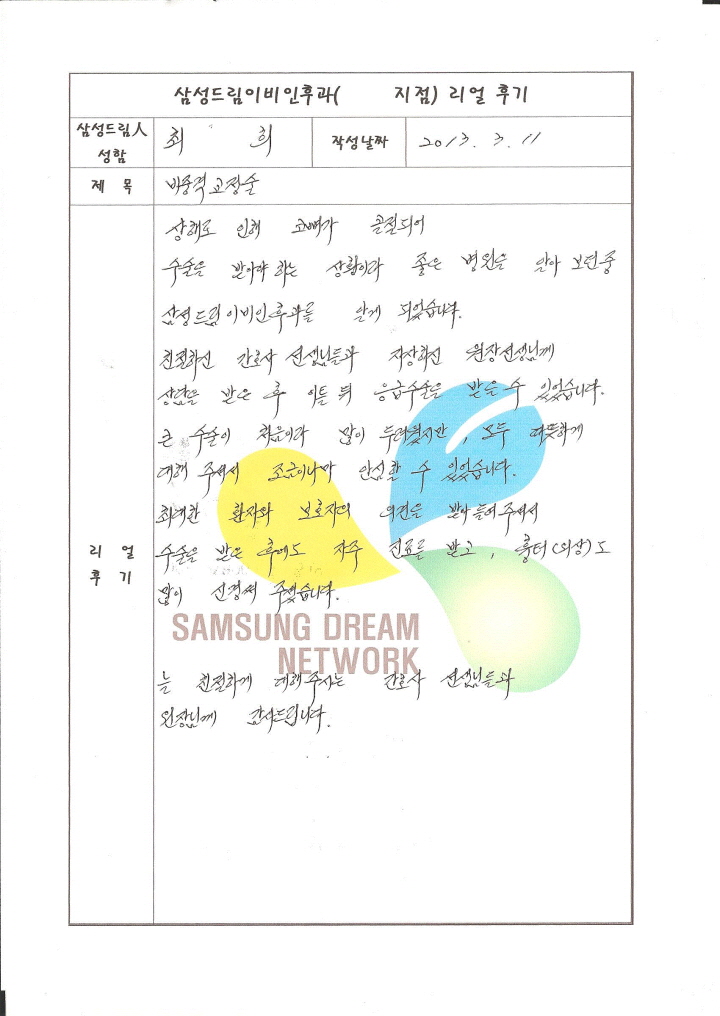 삼성드림이비인후과(      지점) 리얼 후기
삼성드림人
성함
최 희
작성날짜
2013. 3. 11
제 목
비중격교정술
상해로 인해 코뼈가 골절되어
수술을 받아야 하는 상황이라 좋은 병원을 알아 보던중
삼성드림이비인후과를 알게 되었습니다.
친절하신 간호사 선생님들과 자상하신 원장선생님께
상담을 받은 후 이틀 뒤 응급수술을 받을 수 있었습니다.
큰 수술이 처음이라 많이 두려웠지만, 모두 따뜻하게
대해 주셔서 조금이나마 안심할 수 있었습니다.
최대한 환자와 보호자의 의견을 받아들여주셔서
리 얼
후 기
수술을 받은 후에도 자주 진료를 받고, 흉터(외상)도
많이 신경써 주셨습니다.
SAMSUNG DREAM
NETWORK
늘 친절하게 대해주시는 간호사 선생님들과
원장님께 감사드립니다.